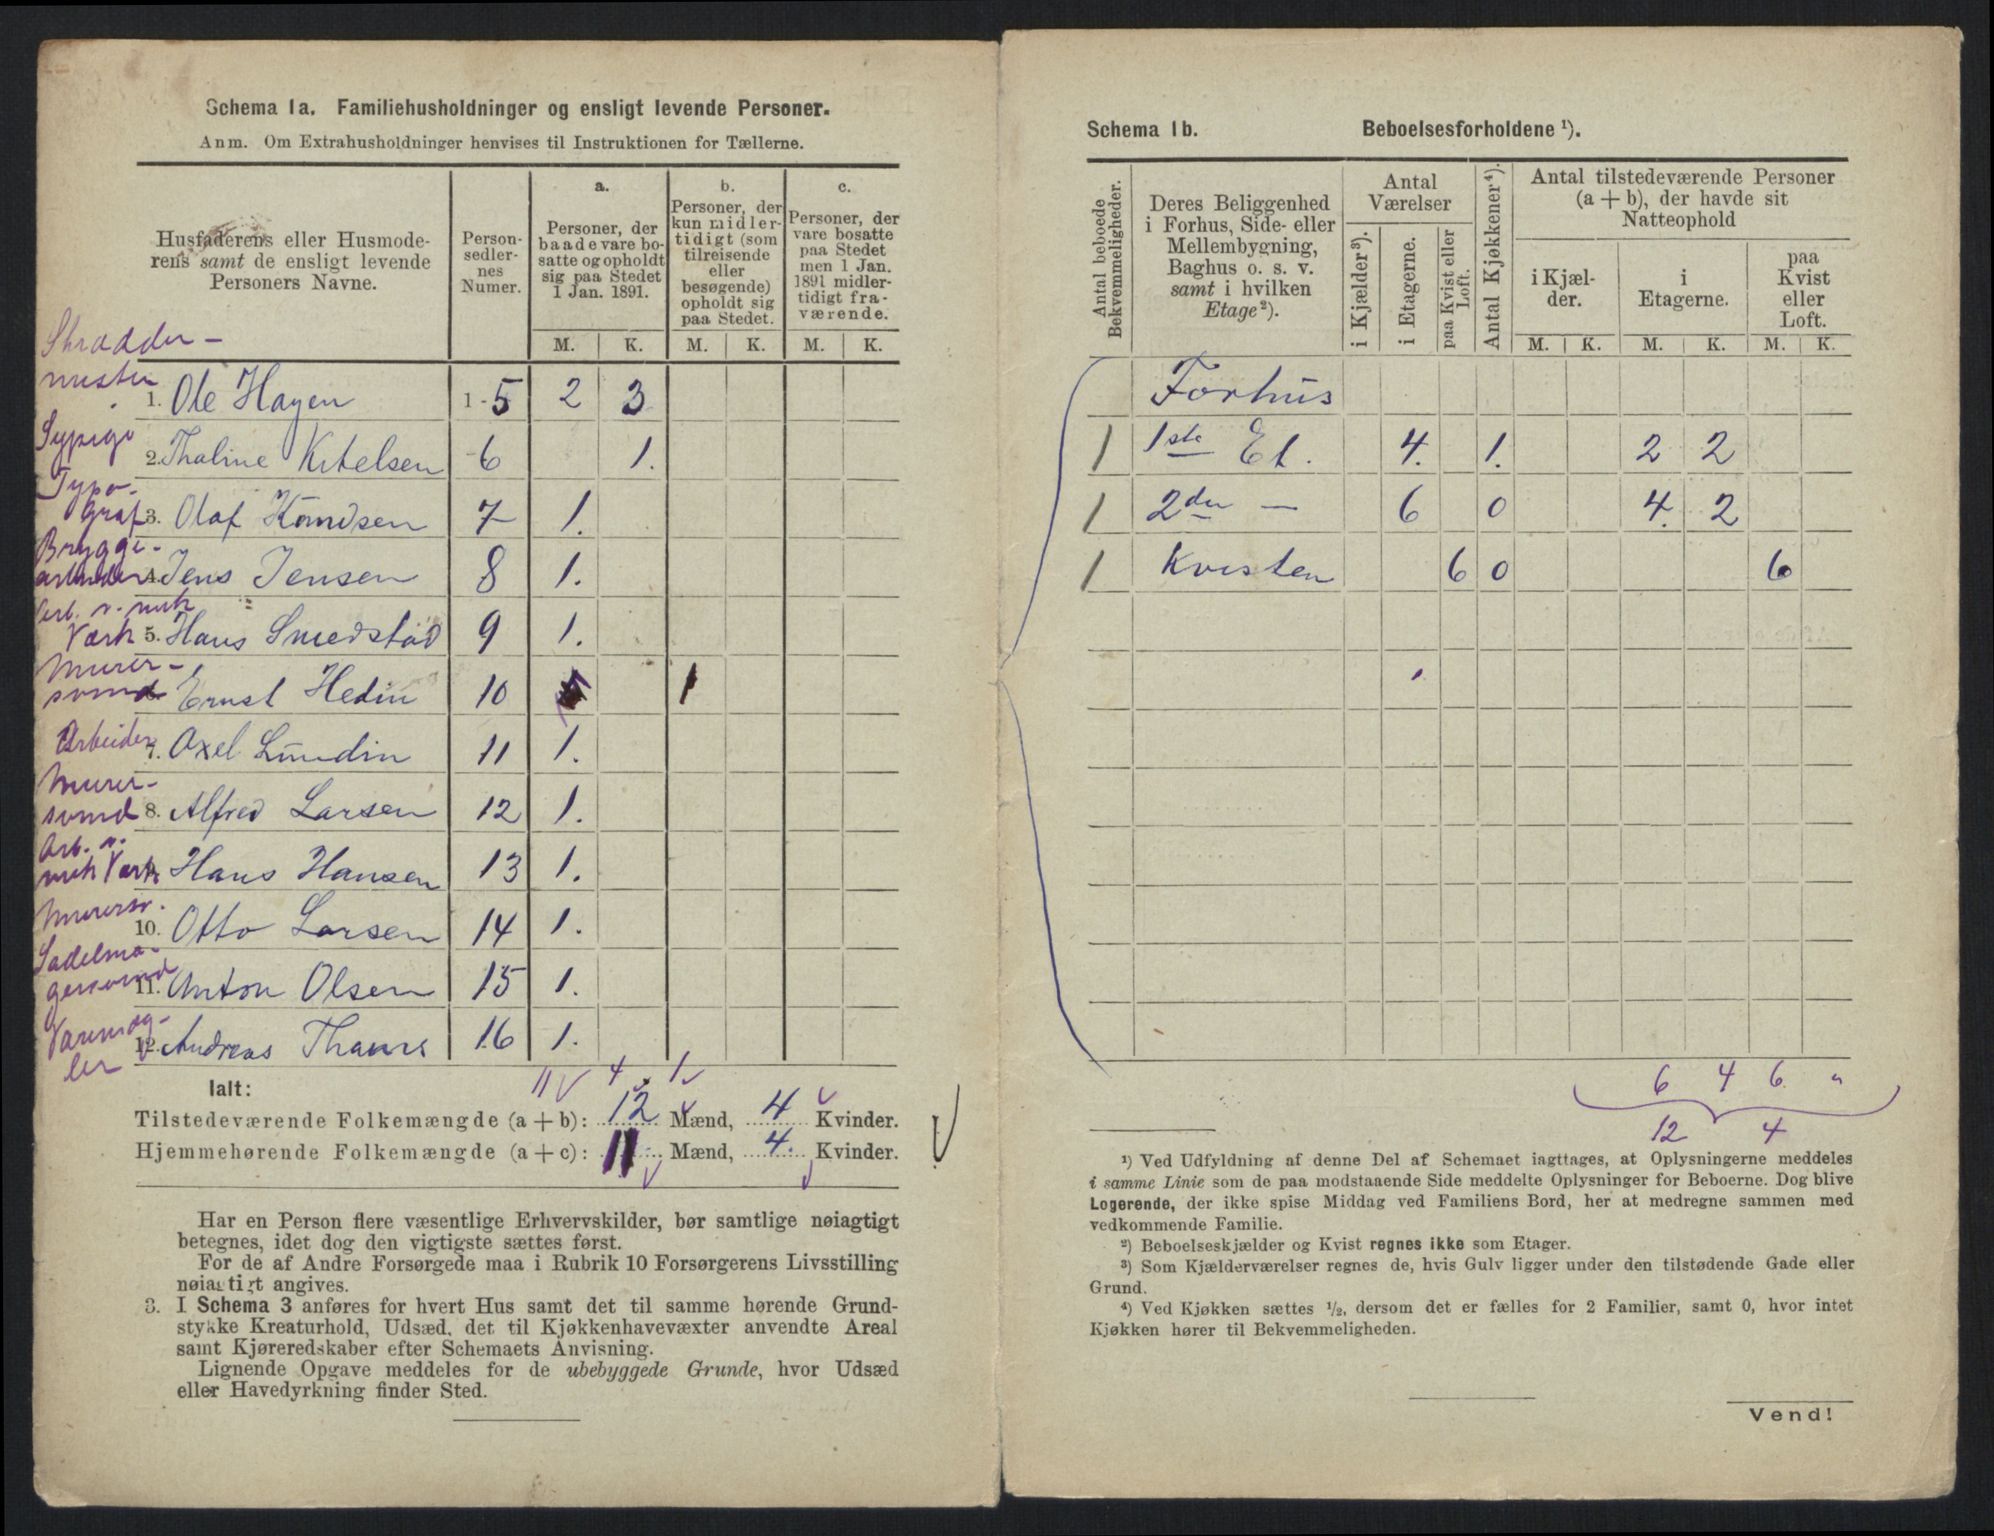 Schema 1a. Familiehusholdninger og ensligt levende Personer.
Anm. Om Extrahusholdninger henvises til Instruktionen for Tællerne.
Husfaderens eller Husmode-
rens samt de ensligt levende
Personers Navne.
Person-
sedler-
nes
Numer.
a.
Personer, der
baade vare bo-
satte og opholdt
sig paa Stedet
1 Jan. 1891.
b.
Personer, der
kun midler-
tidigt (som
tilreisende
eller
besøgende)
opholdt sig
paa Stedet.
c.
Personer, der
vare bosatte
paa Stedet
men 1 Jan.
1891 midler-
tidigt fra-
værende.
M. K. M. K. M. K.
Skrædder-
mester
1. Ole Hagen 1-5 2 3
Sypige
2. Thaline Kitelsen -6 1.
Typo-
graf
3. Olaf Knudsen 7 1.
Brygge-
arbeider
4. Jens Jensen 8 1.
Arb. v. mek
Værk
5. Hans Smedstad 9 1.
Murer-
svend
6. Ernst Hedin 10 1
Arbeider
7. Axel Lundin 11 1.
Murer-
svend
8. Alfred Larsen 12 1.
Arb. v.
mek Værk
9. Hans Hansen 13 1.
Murersv.
10. Otto Larsen 14 1.
Sadelma-
gersvend
11. Anton Olsen 15 1.
Varemæg-
ler
12. Andreas 16 1.
Ialt:
11 4 1
Tilstedeværende Folkemængde (a + b): 12 Mænd, 4 Kvinder.
Hjemmehørende Folkemængde (a + c): 11 Mænd, 4. Kvinder.
Har en Person flere væsentlige Erhvervskilder, bør samtlige nøiagtigt
betegnes, idet dog den vigtigste sættes først.
For de af Andre Forsørgede maa i Rubrik 10 Forsørgerens Livsstilling
nøiagtigt angives.
3. I Schema 3 anføres for hvert Hus samt det til samme hørende Grund-
stykke Kreaturhold, Udsæd, det til Kjøkkenhavevæxter anvendte Areal
samt Kjøreredskaber efter Schemaets Anvisning.
Lignende Opgave meddeles for de ubebyggede Grunde, hvor Udsæd
eller Havedyrkning finder Sted.
Schema 1b. Beboelsesforholdene ¹).
Antal beboede
Bekvemmeligheder.
Deres Beliggenhed
i Forhus, Side- eller
Mellembygning,
Baghus o. s. v.
samt i hvilken
Etage ²).
Antal
Værelser
i Kjælder ³).
i Etagerne.
paa Kvist eller
Loft.
Antal Kjøkkener ⁴).
Antal tilstedeværende Personer
(a + b), der havde sit
Natteophold
i Kjæl-
der.
i
Etagerne.
paa
Kvist
eller
Loft.
M. K. M. K. M. K.
Forhus
1 1ste Et. 4. 1. 2 2
1 2den — 6 0 4. 2
1 Kvisten 6 0 6
6 4 6 "
12 4
¹) Ved Udfyldning af denne Del af Schemaet iagttages, at Oplysningerne meddeles
i samme Linie som de paa modstaaende Side meddelte Oplysninger for Beboerne. Dog blive
Logerende, der ikke spise Middag ved Familiens Bord, her at medregne sammen med
vedkommende Familie.
²) Beboelseskjælder og Kvist regnes ikke som Etager.
³) Som Kjælderværelser regnes de, hvis Gulv ligger under den tilstødende Gade eller
Grund.
⁴) Ved Kjøkken sættes ½, dersom det er fælles for 2 Familier, samt 0, hvor intet
Kjøkken hører til Bekvemmeligheden.
Vend!